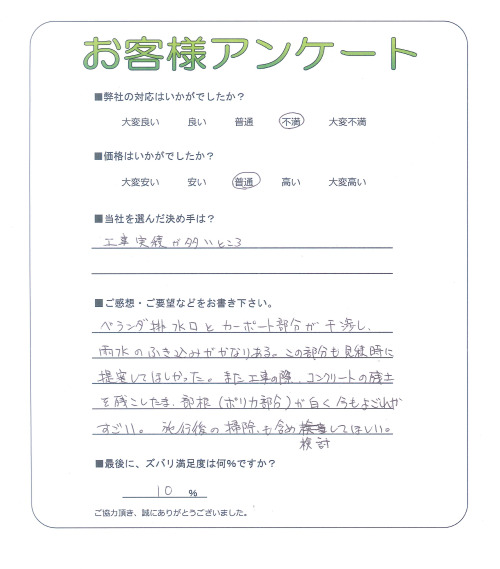 お客様アンケート
■弊社の対応はいかがでしたか？
大変良い 良い 普通 不満 大変不満
■価格はいかがでしたか？
大変安い 安い 普通 高い 大変高い
■当社を選んだ決め手は？
工事実績が多いところ
■ご感想・ご要望などをお書き下さい。
ベランダ排水口とカーポート部分が干渉し、
雨水のふき込みがかなりある。この部分も見積時に
提案してほしかった。また工事の際、コンクリートの残土
を残したまま、部根（ポリカ部分）が白く今もよごれが
すごい。施行後の掃除も含め してほしい。
検討
■最後に、ズバリ満足度は何%ですか？
10 %
ご協力頂き、誠にありがとうございました。